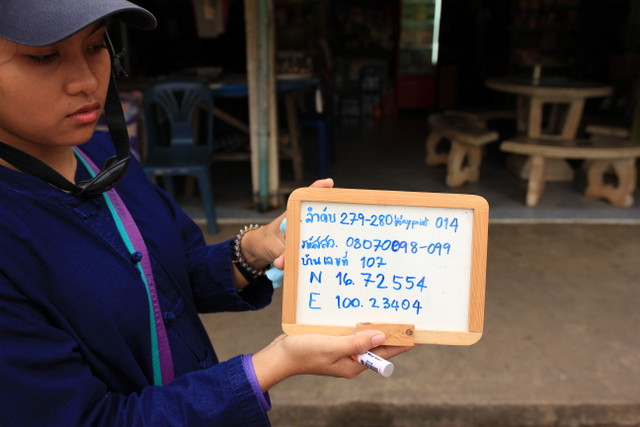 ลำดับ 279-280 Waypoint 014
รหัสสว. 08070098-099
บ้านเลขที่ 107
N 16.72554
E 100.23404